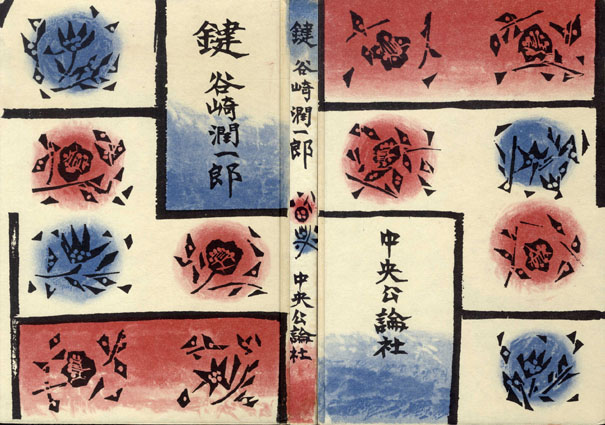 鍵
谷崎潤一郎
鍵 谷崎潤一郎
中央公論社
中央公論社